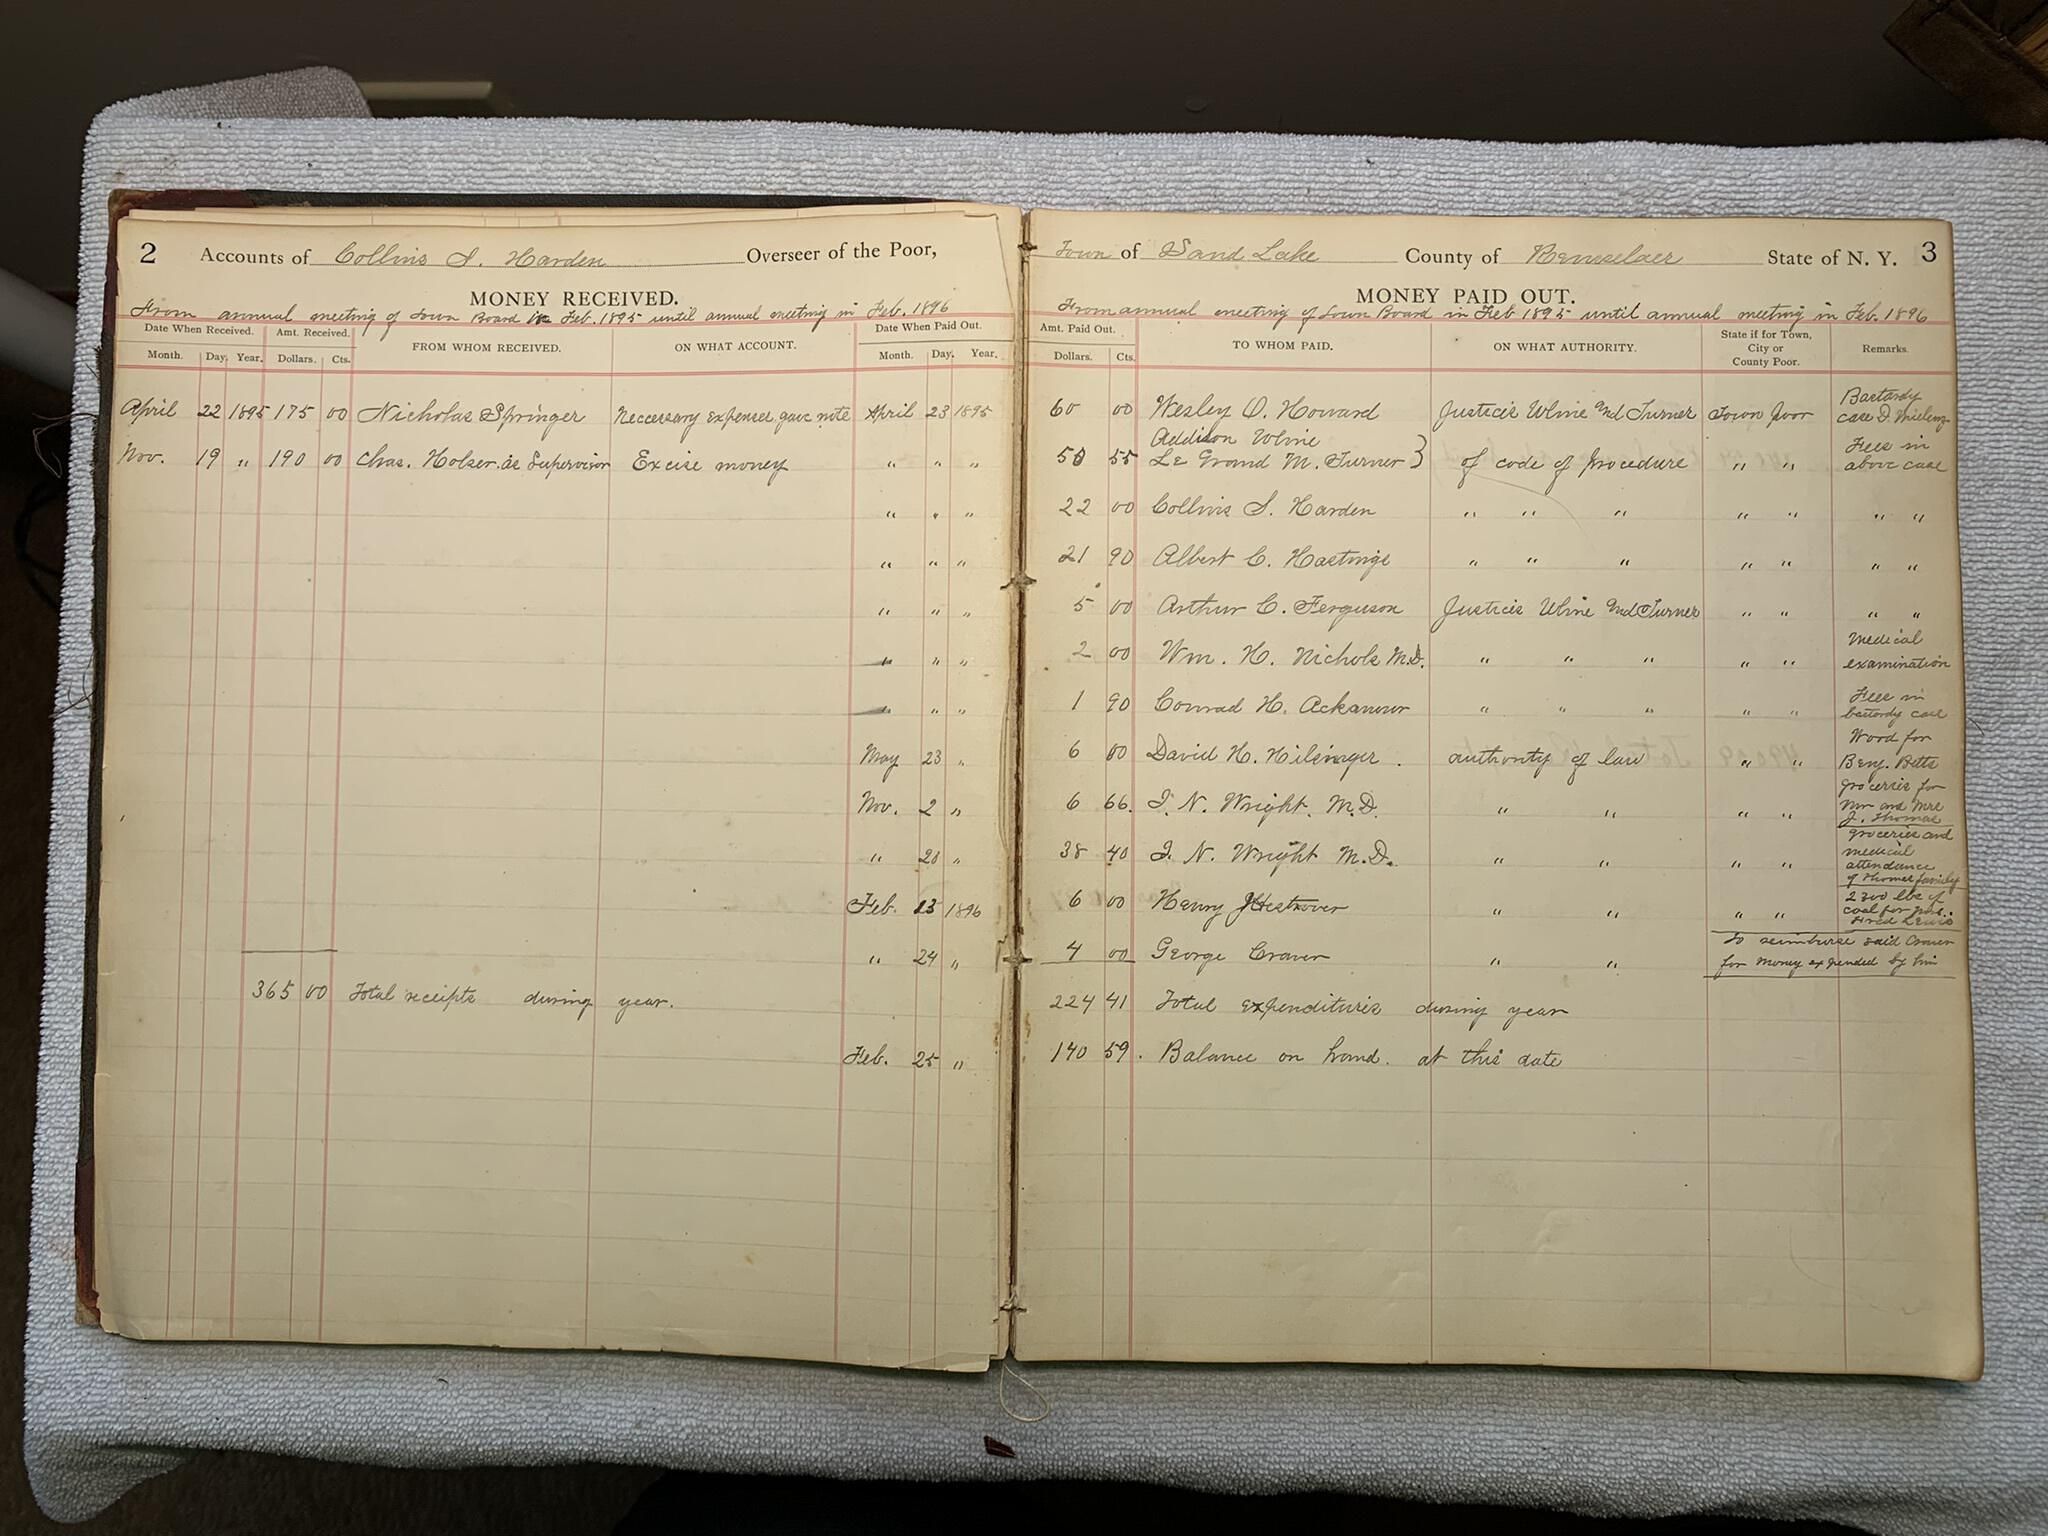 2 Accounts of Collins S. Harden Overseer of the Poor,
MONEY RECEIVED.
From annual meeting of Town Board in Feb. 1895 until annual meeting in Feb. 1896
Date When Received. Amt. Received. FROM WHOM RECEIVED. ON WHAT ACCOUNT. Date When Paid Out.
Month. Day. Year. Dollars. Cts. Month. Day. Year.
April 22 1895 175 00 Nicholas Springer Neccessary expenses gave note April 23 1895
Nov. 19 " 190 00 Chas. Holser as Supervisor Excise money " " "
" " "
" " "
" " "
" " "
" " "
May 23 "
Nov. 2 "
" 20 "
Feb. 13 1896
" 24 "
365 00 Total receipts during year.
Feb. 25 "
Town of Sand Lake County of Rensselaer State of N. Y. 3
MONEY PAID OUT.
From annual meeting of Town Board in Feb 1895 until annual meeting in Feb. 1896
Amt. Paid Out. TO WHOM PAID. ON WHAT AUTHORITY. State if for Town, City or County Poor. Remarks.
Dollars. Cts.
60 00 Wesley O. Howard Justices Uline and Turner Town Poor Bastardy case D.
50 55 Addison Uline Le Grand M. Turner } of code of procedure " " Fees in above case
22 00 Collins S. Harden " " " " " " "
21 90 Albert C. Hastings " " " " " " "
5 00 Arthur C. Ferguson Justices Uline and Turner " " " "
2 00 Wm. H. Nichols M.D. " " " " " Medical examination
1 90 Conrad H. " " " " " Fees in bastardy case
6 00 David H. Hilsinger. authority of law " " Wood for Benj. Betts
6 66. I. N. Wright. M.D. " " " " groceries for Mr and Mrs J. Thomas
38 40 I. N. Wright M.D. " " " " groceries and medical attendance of Thomas family
6 00 Henry " " " " 2300 lbs of coal for Mrs. Fred Lewis
4 00 George Craver " " To reimburse said Craver for money expended by him
224 41 Total expenditures during year
140 59. Balance on hand. at this date